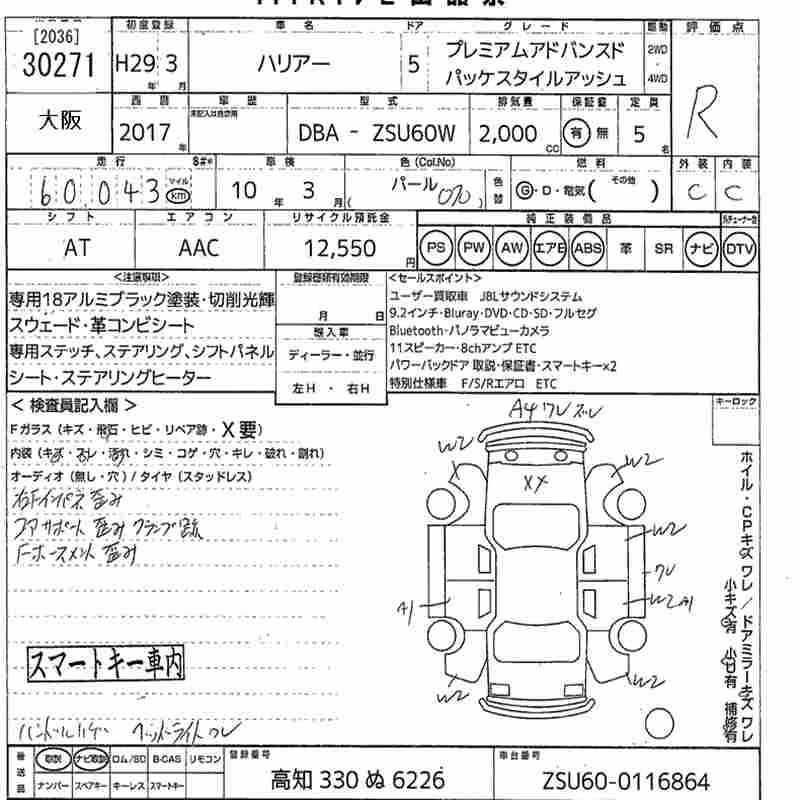 [2036]
30271
初度登録 車名 ドア グレード 駆動 評価点
H29年 3月 ハリアー 5 プレミアムアドバンスド
パッケスタイルアッシュ
2WD
4WD
R
大阪
西暦 車歴 型式 排気量 保証書 定員
未記入は自家用
2017年 DBA - ZSU60W 2,000cc 有 無 5名
走行 車検 色(Col.No) 燃料 外装 内装
60,043 マイル km 10年 3月 パール (070) 色替 G・D・電気( その他 ) C C
シフト エアコン リサイクル預託金 純正装備品
AT AAC 12,550円 PS PW AW エアB ABS 革 SR ナビ DTV
<注意事項>
専用18アルミブラック塗装・切削光輝
スウェード・革コンビシート
専用ステッチ、ステアリング、シフトパネル
シート・ステアリングヒーター
登録書類有効期限
月 日
輸入車
ディーラー・並行
左H ・ 右H
<セールスポイント>
ユーザー買取車 JBLサウンドシステム
9.2インチ・Bluray・DVD・CD・SD・フルセグ
Bluetooth・パノラマビューカメラ
11スピーカー・8chアンプ ETC
パワーバックドア 取説・保証書・スマートキー×2
特別仕様車 F/S/Rエアロ ETC
< 検査員記入欄 >
Fガラス(キズ・飛石・ヒビ・リペア跡・X要)
内装(キズ・スレ・汚れ・シミ・コゲ・穴・キレ・破れ・割れ)
オーディオ(無し・穴)/タイヤ(スタッドレス)
右Fインパネ歪み
コアサポート 歪み クランプ跡
歪み
スマートキー車内
ヘッドライトワレ
キーロック
A4 ワレ ズレ
W2
W2
XX
X
W2
ワレ
A1
W2 A1
W2
W2
ホイル・CPキズ ワレ / ドアミラーキズ ワレ
小キズ有 小凹有 補修有
後送品 取説 ナビ取説 ロム/SD B-CAS リモコン
ナンバー スペアキー キーレス スマートキー
登録番号
高知 330 ぬ 6226
車台番号
ZSU60-0116864